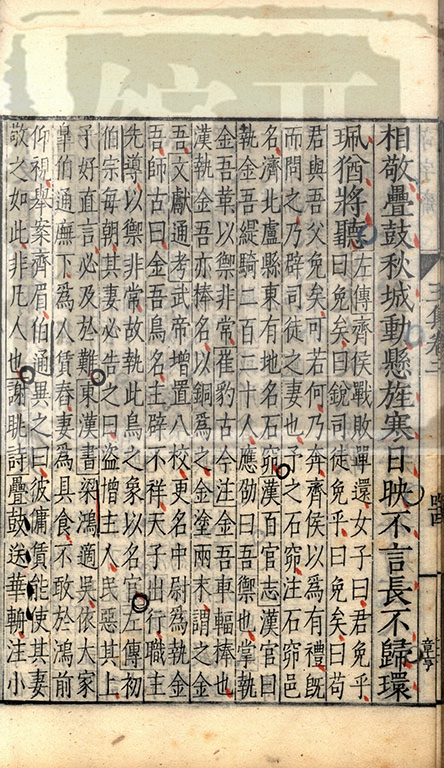 相敬疊鼓秋城動懸旌寒日映不言長不歸環
珮猶將聽
左傳齊侯戰敗單還女子曰君免乎
曰免矣曰銳司徒免乎曰免矣曰苟
君與吾父免矣可若何乃奔齊侯以為有禮旣
而問之乃辟司徒之妻也予之石窌注石窌邑
名濟北盧縣東有地名石窌漢百官志漢官曰
執金吾緹騎二百三十人應劭曰吾禦也掌執
金吾革以禦非常崔豹古今注金吾車輻棒也
漢執金吾亦棒名以銅為之金塗兩末謂之金
吾文獻通考武帝增置八校更名中尉為執金
吾師古曰金吾鳥名主辟不祥天子出行職主
先導以禦非常故執此鳥之象以名官左傳初
伯宗每朝其妻必告之曰盜憎主人民惡其上
子好直言必及於難東漢書梁鴻適吳依大家
皐伯通廡下為人賃舂妻為具食不敢於鴻前
仰視舉案齊眉伯通異之曰彼傭賃能使其妻
敬之如此非凡人也謝眺詩疊鼓送華輈注小